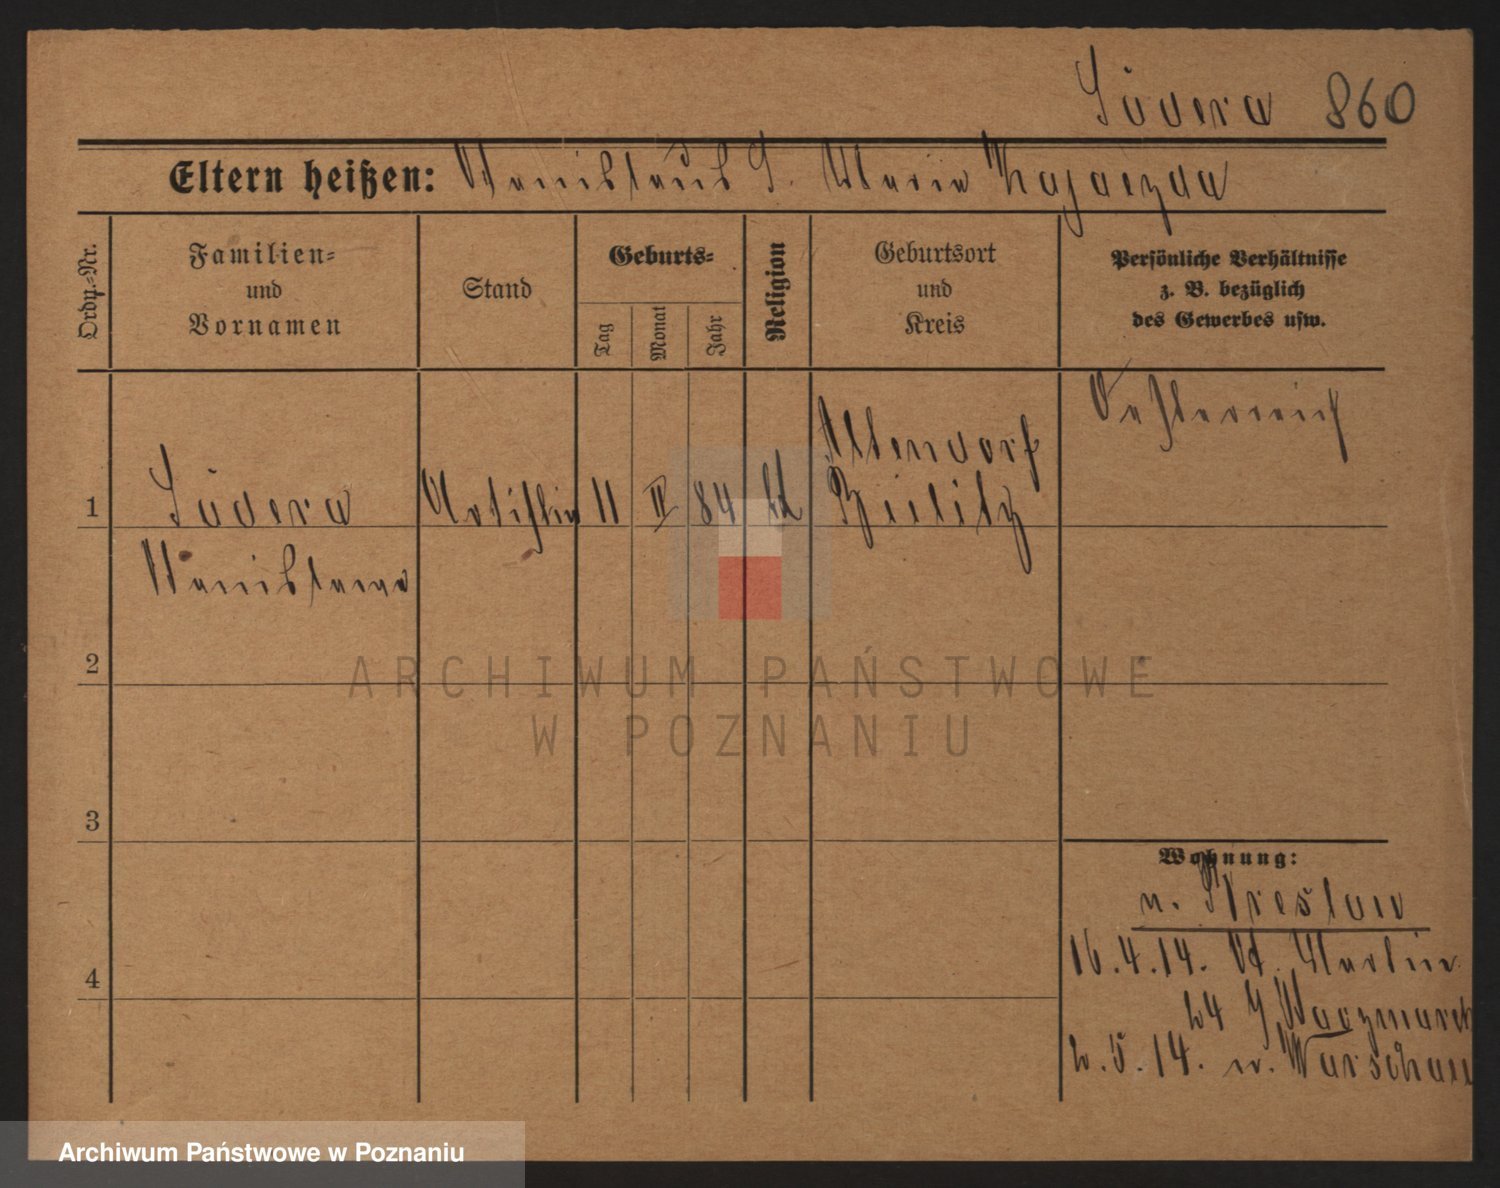 Südera 860
Eltern heißen: Stanislaus S. Maria Kujaczda
Ordn.-Nr.
Familien-
und
Vornamen
Stand
Geburts-
Tag
Monat
Jahr
Religion
Geburtsort
und
Kreis
Persönliche Verhältnisse
z. B. bezüglich
des Gewerbes usw.
Oesterreich
Altendorf
1 Südera Artistin 11 II 84 kt Bielitz
Stanislawa
2
3
4
Wohnung:
n. Breslau
16.4.14. St. Martin
24 Waczmarek
2.5.14. n. Warschau
ARCHIWUM PAŃSTWOWE
W POZNANIU
Archiwum Państwowe w Poznaniu